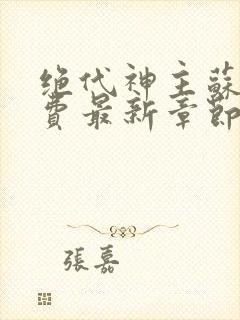 绝代神主蘇
費最新章節
張嘉